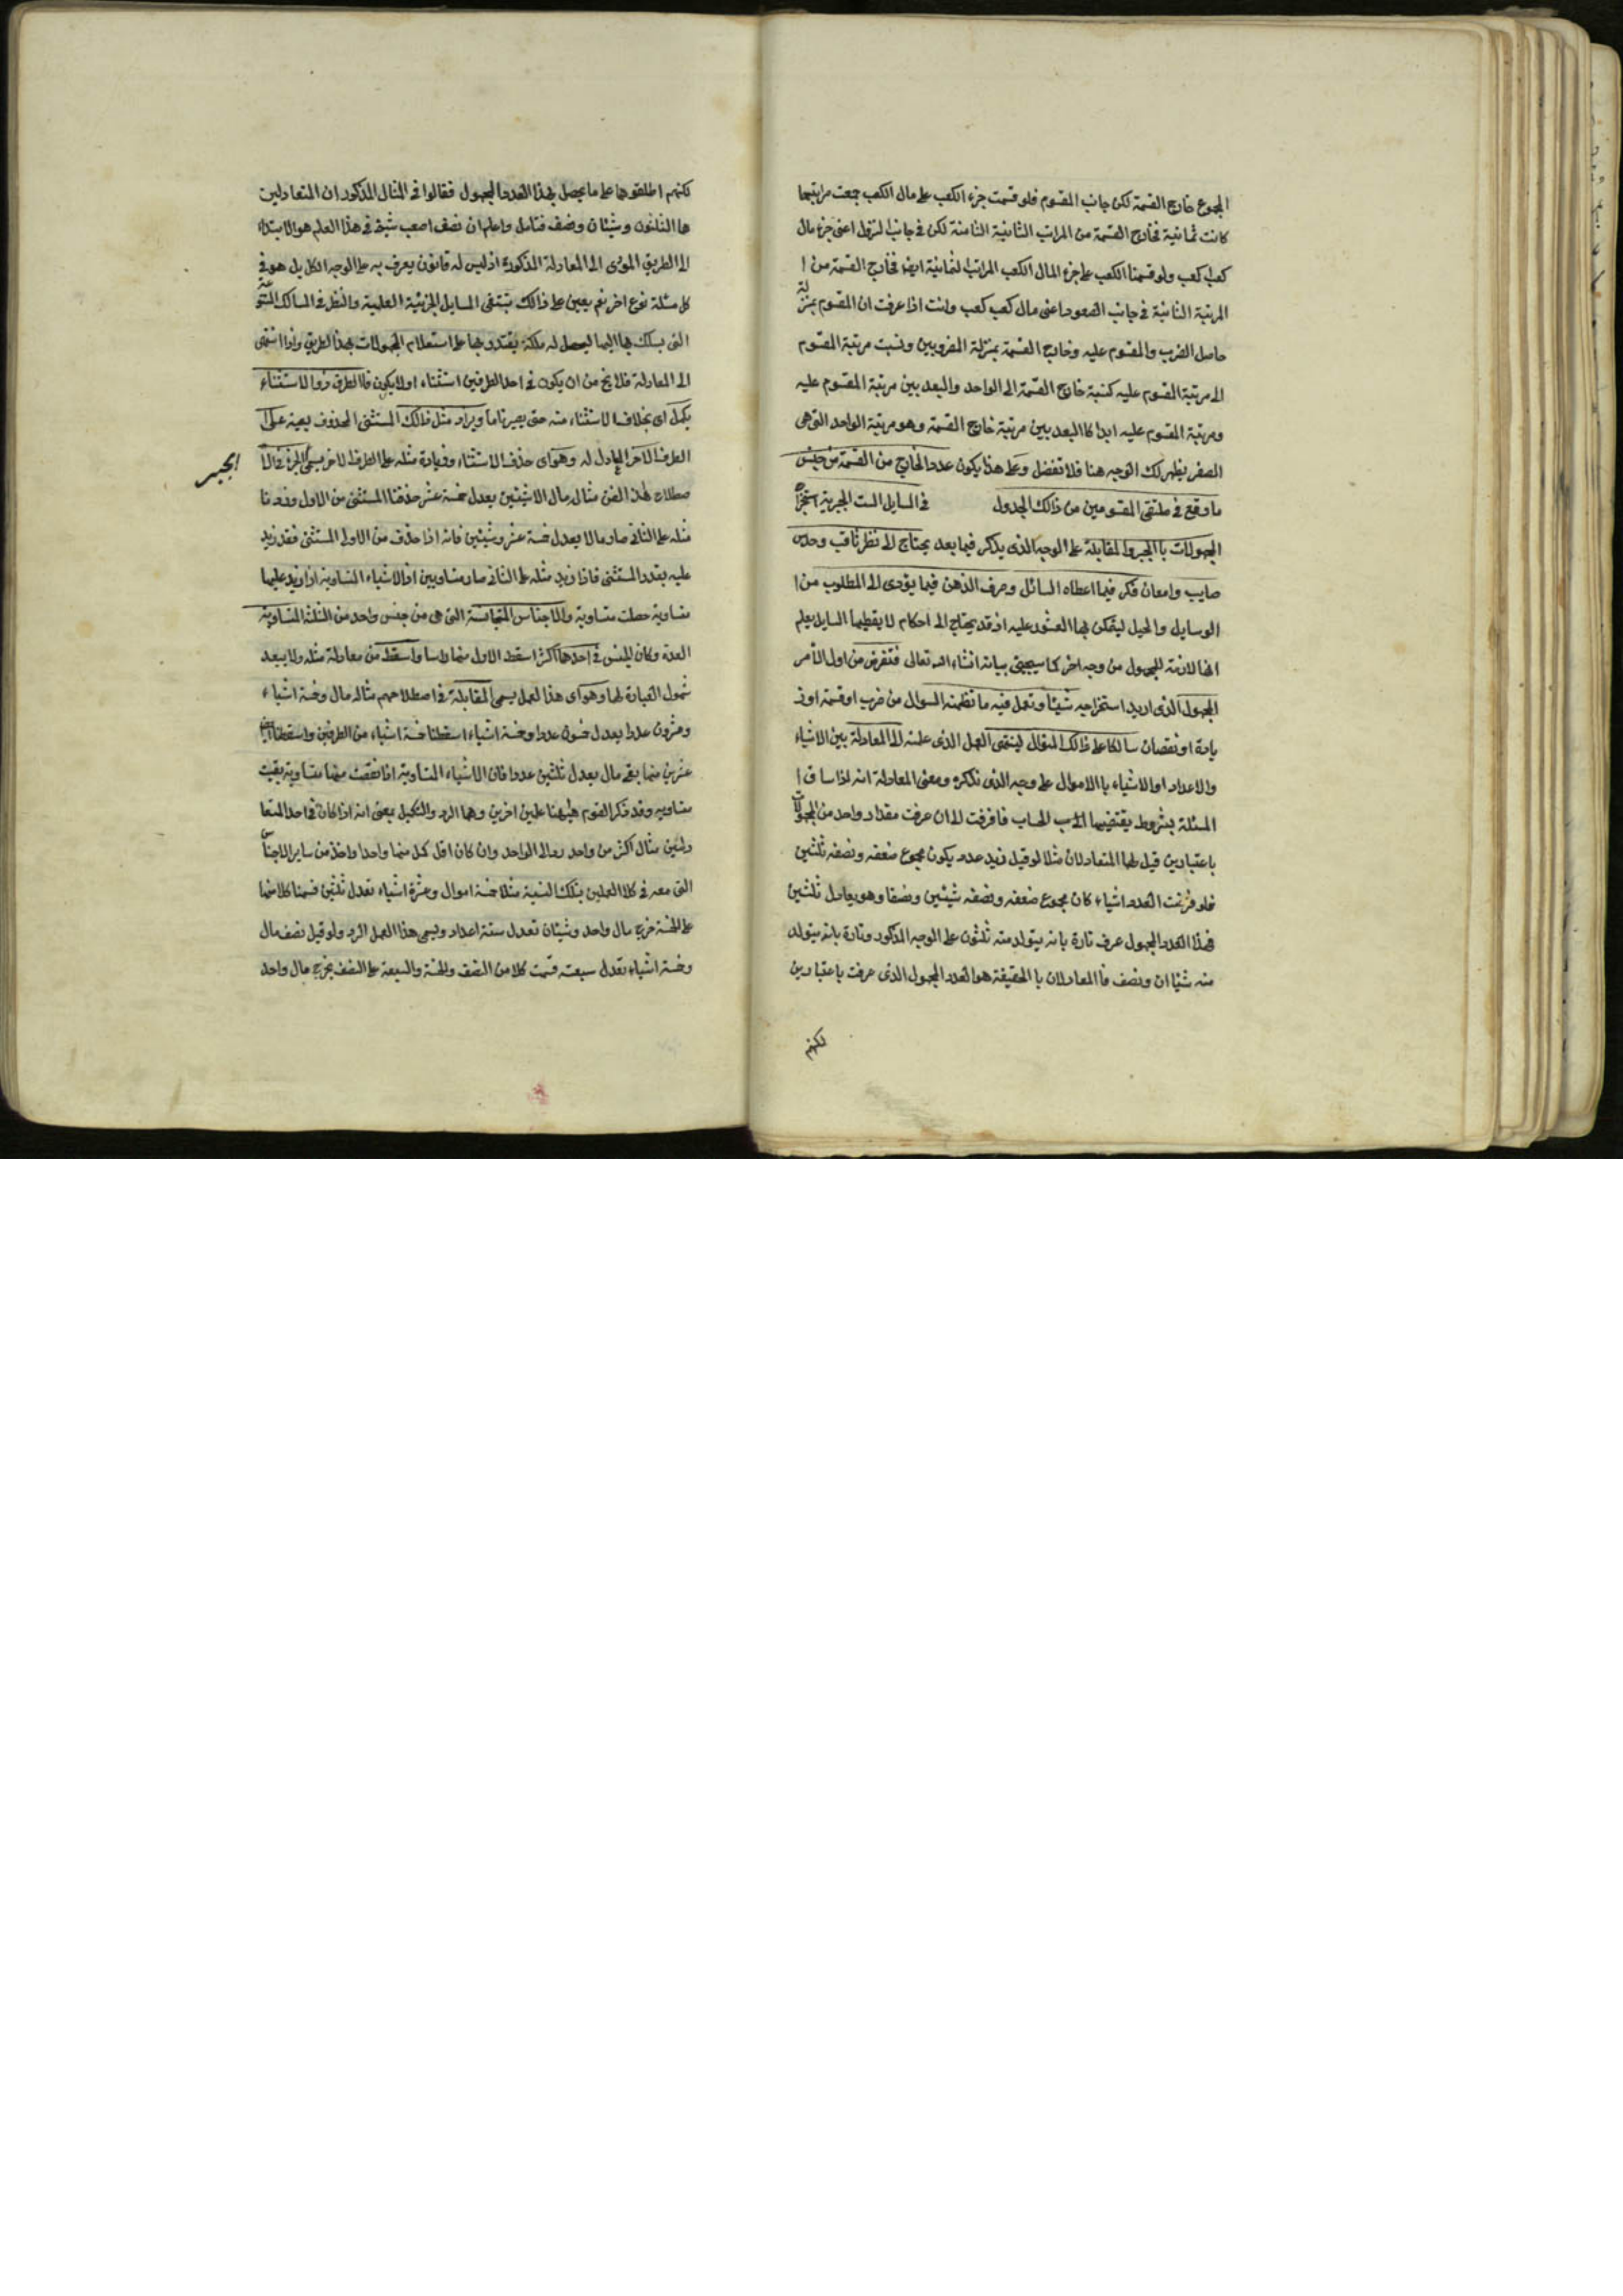 المجموع خارج القسمة لكن جانب المقسوم فلو قسمت جزء الكعب على مال الكعب جمعت مراتبهما
كانت ثمانية فخارج القسمة من المراتب الثانية الثامنة لكن في جانب النزول اعنى جزء مال
كعب كعب ولو قسمنا الكعب على جزء المال الكعب المراتب الثمانية ايضا فخارج القسمة من ا
المرتبة الثامنية في جانب الصعود اعنى مال كعب كعب وانت اذا عرفت ان المقسوم بمنزلة
حاصل الضرب والمقسوم عليه وخارج القسمة بمنزلة المضروبين ونسبت مرتبة المقسوم
الى مرتبة المقسوم عليه كنسبة خارج القسمة الى الواحد والبعد بين مرتبة المقسوم عليه
ومرتبة المقسوم عليه ابدا كالبعد بين مرتبة خارج القسمة وهو مرتبة الواحد التي هي
الصفر يظهر لك الوجه هنا فلا تغفل وعلى هذا يكون عدد الخارج من القسمة من جنس
ما وقع في ملتقى المقسومين من ذالك الجدول في المسايل الست الجبرية استخراج
المجهولات با الجبر والمقابلة على الوجه الذى يذكر فيما بعد يحتاج الى نظر ثاقب وحدس
صايب وامعان فكر فيما اعطاه السائل وصرف الذهن فيما يؤدى الى المطلوب من ا
الوسايل والحيل ليتمكن بها العثور عليه اذ قد يحتاج الى احكام لا يعطيها السايل يعلم
انها لازمة للمجهول من وجه اخر كما سيجئ بيانه انشاء الله تعالى فتفرض من اول الامر
المجهول الذى اريد استخراجه شيئا وتعمل فيه ما تظمنه السوال من ضرب او قسمة او ز
يادة او نقصان سالكا على ذالك المنوال لينتهى العمل الذى علمته الى المعادلة بين الاشياء
والاعداد او الاشياء با الاموال على وجه الذى نذكره ومعنى المعادلة انه اذا ساق ا
المسئلة بشروط يقتضيها الحساب فافرقت الى ان عرفت مقدار واحد من المجهولات
باعتبارين قيل لهما المتعادلان مثلا لو قيل نريد عدد يكون مجموع ضعفه ونصفه ثلثين
فلو فرضت العدد اشياء كان مجموع ضعفه ونصفه شيئين ونصفا وهو يعادل ثلثين
فهذا العدد المجهول عرف تارة بانه يتولد منه ثلثون على الوجه المذكور وتارة بانه يتولد
منه شيئا ان ونصف فا المعادلان با الحقيقة هو العدد المجهول الذى عرفت باعتبارين
لكنهم
لكنهم اطلقوها على ما يحصل بهذا العدد المجهول فقالوا في المثال المذكور ان المتعادلين
هما الثلثون وشيئان ونصف فتامل واعلم ان نصف اصعب شيئ في هذا العلم هو الابتداء
الى الطريق المؤدى الى المعادلة المذكورة اذ ليس له قانون يعرف به على الوجه الكل بل هو في
كل مسئلة نوع اخر نعم يعين على ذالك تتبع المسايل الجزئية العلمية والنظر في المسالك المتنوعة
التي يسلك بها اليها ليحصل له ملكة يقتدر بها على استعلام المجهولات بهذا الطريق واذا انتهى
الى المعادلة فلا يخ من ان يكون في احد الطرفين استثناء اولا يكون فا الطرف ذوا الاستثناء
يكمل اى بخلاف الاستثناء منه حتى يصير تاما ويزاد مثل ذالك المستثنى المحذوف بعينه على
الطرف الاخر المعادل له وهو اى حذف الاستثناء وزيادة مثله على الطرف الاخر يسمى الجبر في الا
الجبر
صطلاح لهذا الفن مثاله مال الا شيئين يعدل خمسة عشر حذفنا المستثنى من الاول وزدنا
مثله على الثاني صار مالا يعدل خمسة عشر وشيئين فانه اذا حذف من الاول المستثنى فقد زيد
عليه بقدر المستثنى فاذا زيد مثله على الثاني صار متساويين اذ الاشياء المتساوية اذا زيد عليها
متساوية حصلت متساوية والاجناس المتجانسة التي هي من جنس واحد من الثلثة المتساوية
العدة وكان للجنس في احدهما اكثر اسقط الاول منهما راسا واسقط من معادلة مثله ولا يبعد
شمول العبارة لهما وهو اى هذا العمل يسمى المقابلة في اصطلاحهم مثاله مال وخمسة اشياء
وعشرون عددا يعدل خمسون عددا وخمسة اشياء اسقطنا خمسة اشياء من الطرفين واسقطنا ايضا
عشرين منهما بقى مال يعدل ثلثين عددا فان الاشياء المتساوية اذا نقصت منها متساوية بقيت
متساوية وقد ذكر القوم هيهنا علمين اخرين وهما الرد والتكميل بمعنى انه اذا كان في احد المتعا
دلين مثال اكثر من واحد رد الى الواحد وان كان اقل كمل منهما واحدا واخذ من ساير الاجناس
التي معه في كلا العملين بتلك النسبة مثلا خمسة اموال وعشرة اشياء تعدل ثلثين قسمنا كلا منها
على الخمسة خرج مال واحد وشيئان تعدل ستة اعداد ويسمى هذا العمل الرد ولو قيل نصف مال
وخمسة اشياء تعدل سبعة قسمت كلا من النصف والخمسة والسبعة على النصف يخرج مال واحد